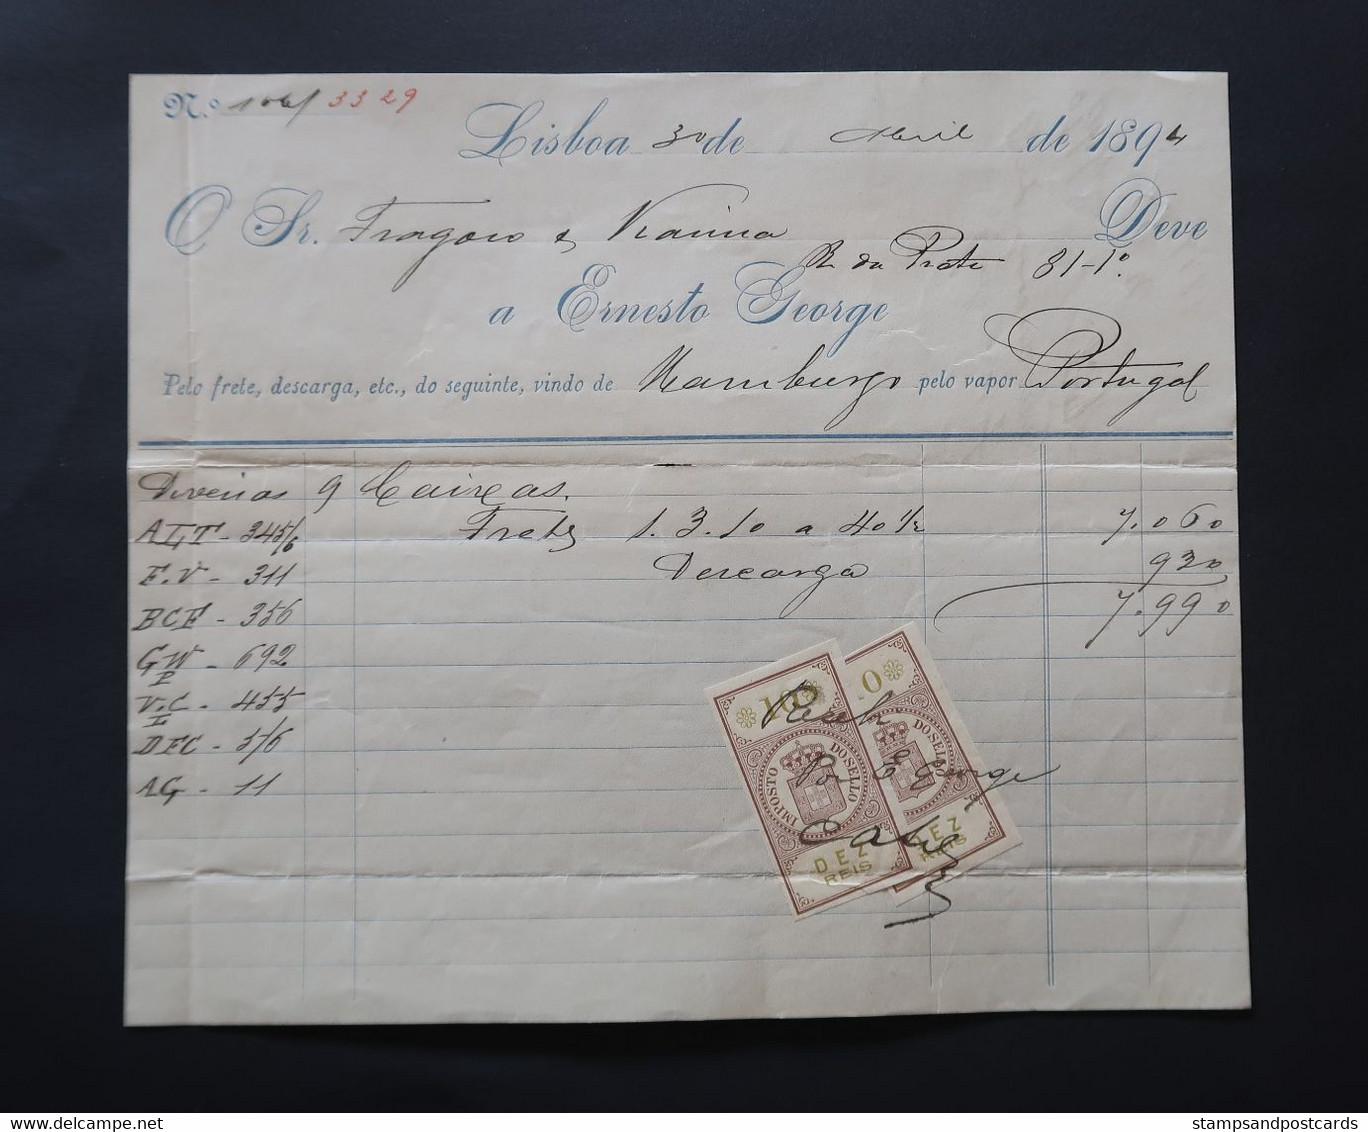 N.º 3329
Lisboa 30 de Abril de 1894
O Sr. Fragoso & Vianna Deve
R. da Prata 81-1º
a Ernesto George
Pelo frete, descarga, etc., do seguinte, vindo de Hamburgo pelo vapor Portugal
Diversas 9 Caixas.
ALT - 345/6 Frete 1.3.10 a 40½ 7.060
F.V - 311 Descarga 930
BCF - 356 7.990
GW P - 692
V.C - 455
DFC - 5/6
AG - 11
100 10
IMPOSTO DO SELLO DO SELLO
Receb
Por E George
DEZ REIS DEZ REIS
stampsandpostcards